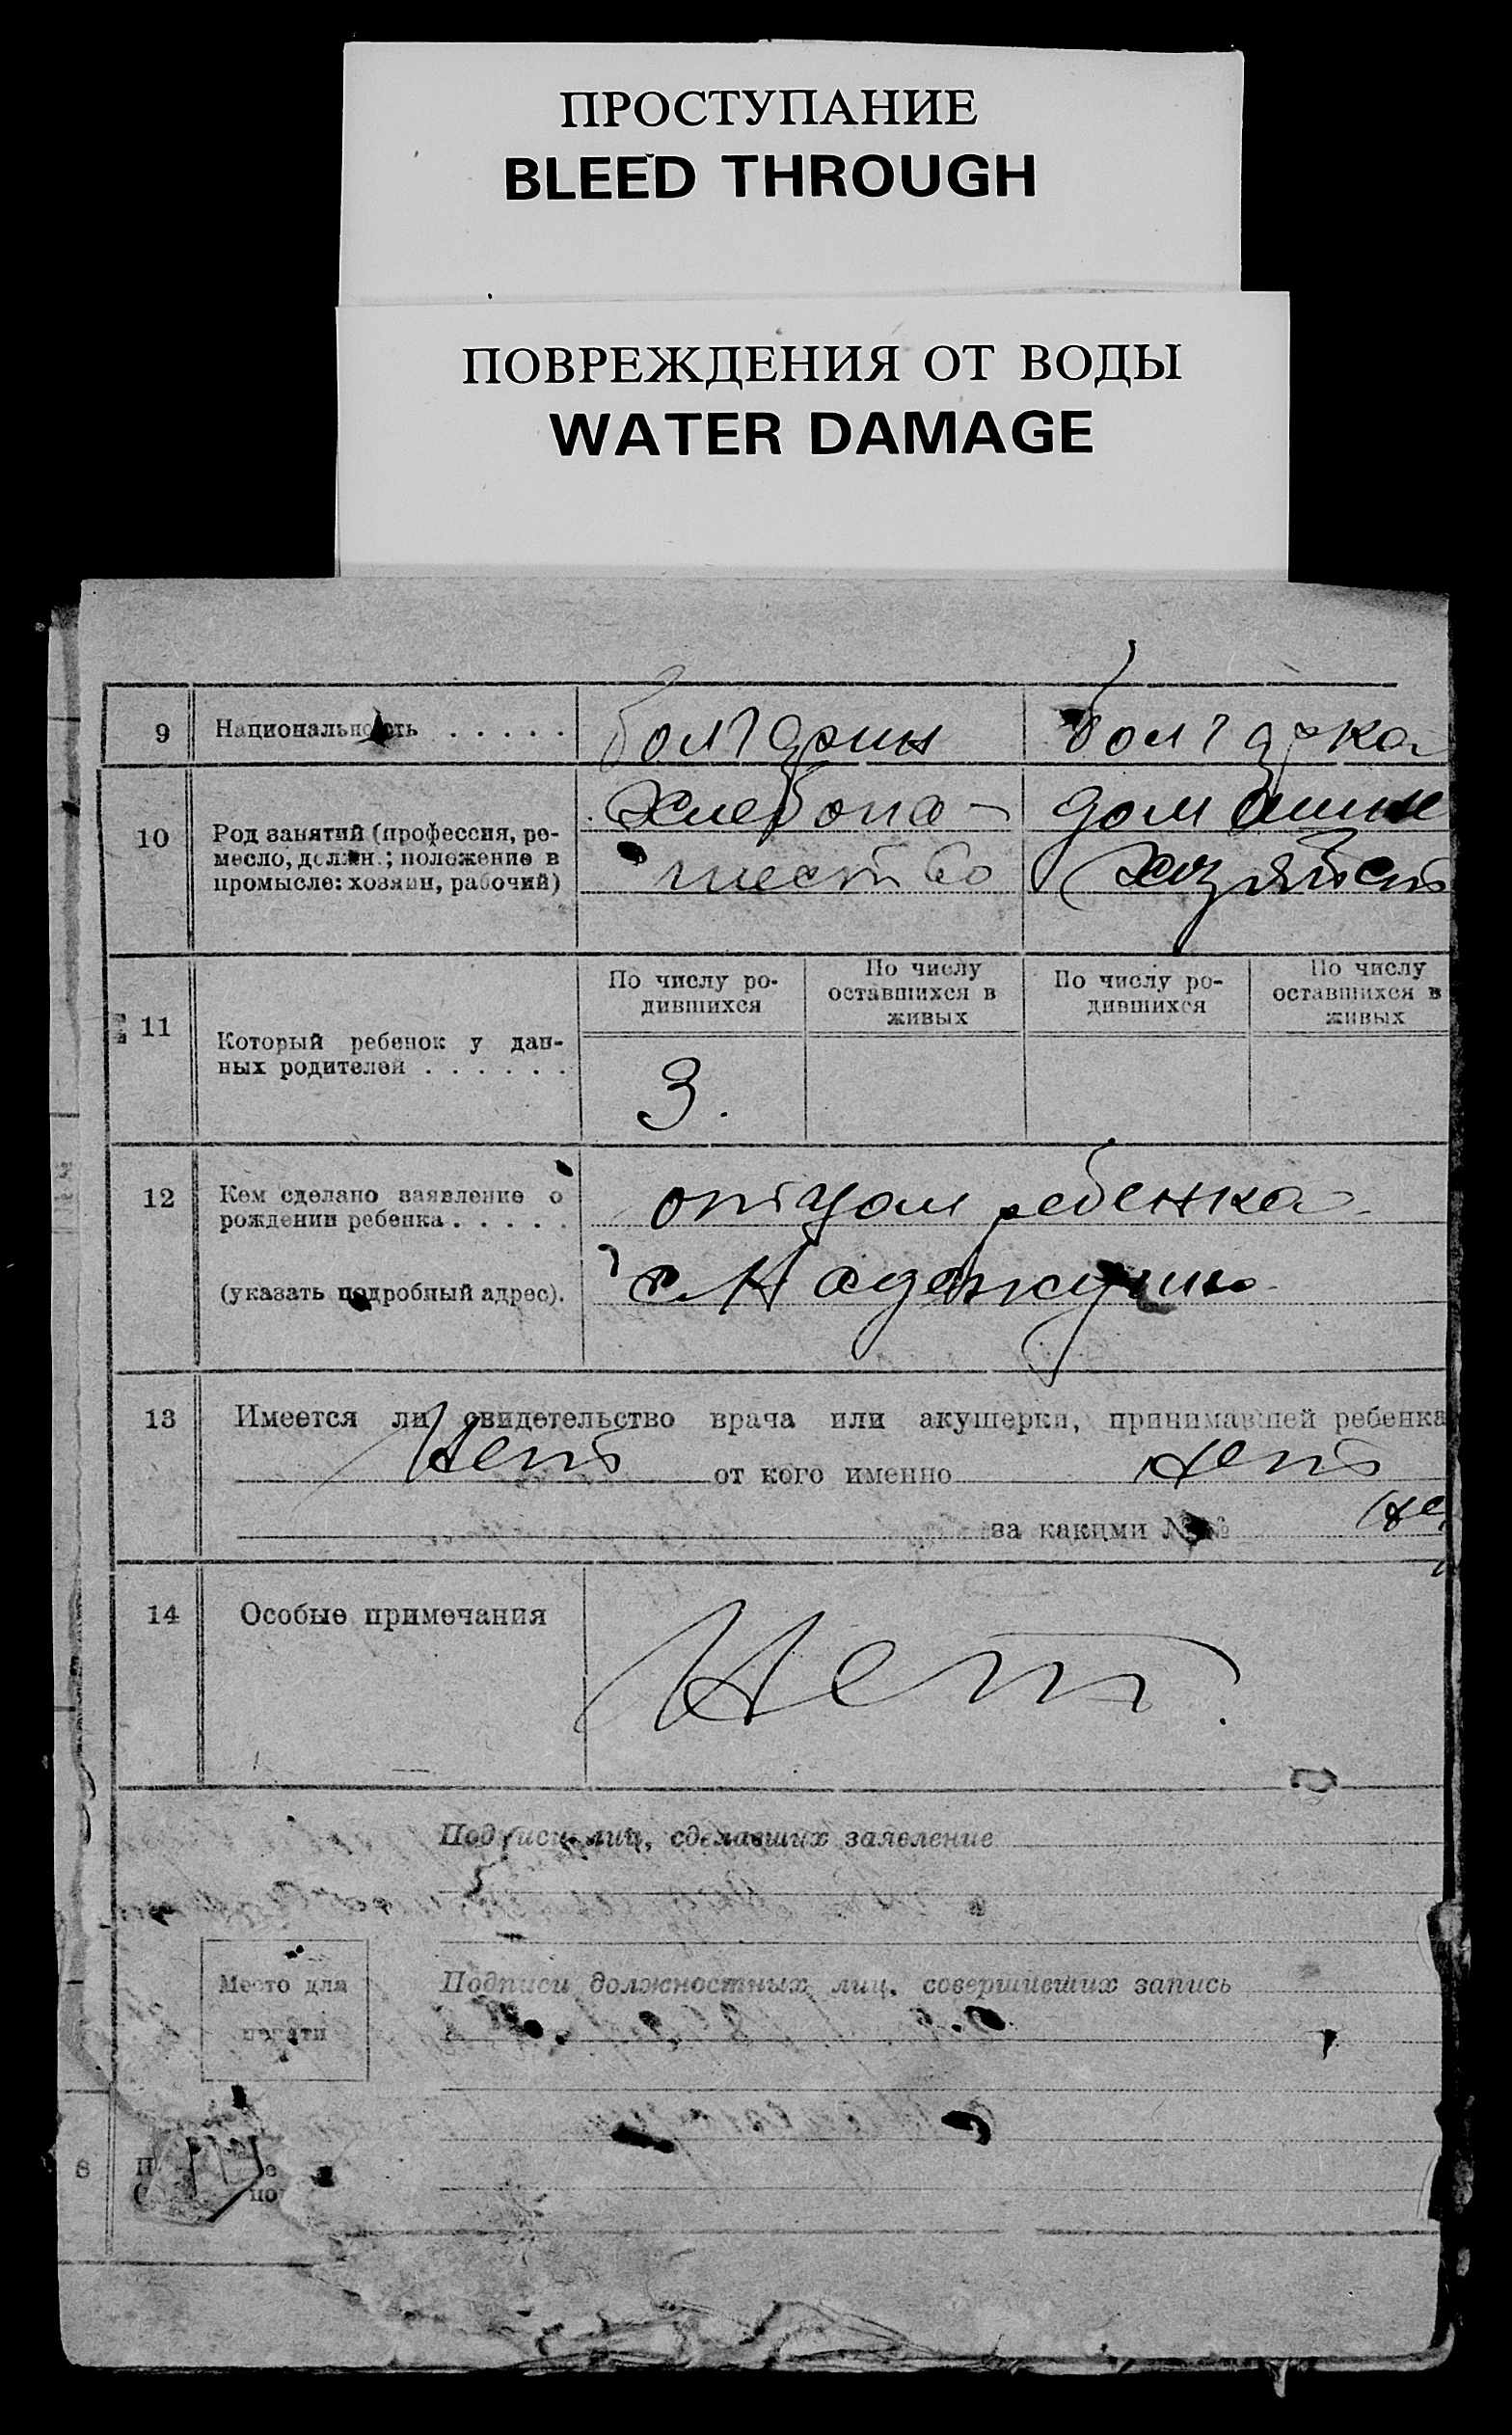 ПРОСТУПАНИЕ
BLEED THROUGH
ПОВРЕЖДЕНИЯ ОТ ВОДЫ
WATER DAMAGE
9 Национальность . . . . . болгарин болгарка
10 Род занятий (профессия, ре-
месло, должн.; положение в
промысле: хозяин, рабочий)
хлебопа- домашнее
шество хозяйст
11 Который ребенок у дан-
ных родителей . . . . . .
По числу ро-
дившихся
По числу
оставшихся в
живых
По числу ро-
дившихся
По числу
оставшихся в
живых
3.
12 Кем сделано заявление о
рождении ребенка . . . . .
отцом ребенка
(указать подробный адрес).
с.
13 Имеется ли свидетельство врача или акушерки, принимавшей ребенка
Нет от кого именно нет
за какими №№ не
14 Особые примечания Нет.
Подписи лиц, сделавших заявление
Место для
печати
Подписи должностных лиц, совершивших запись
8